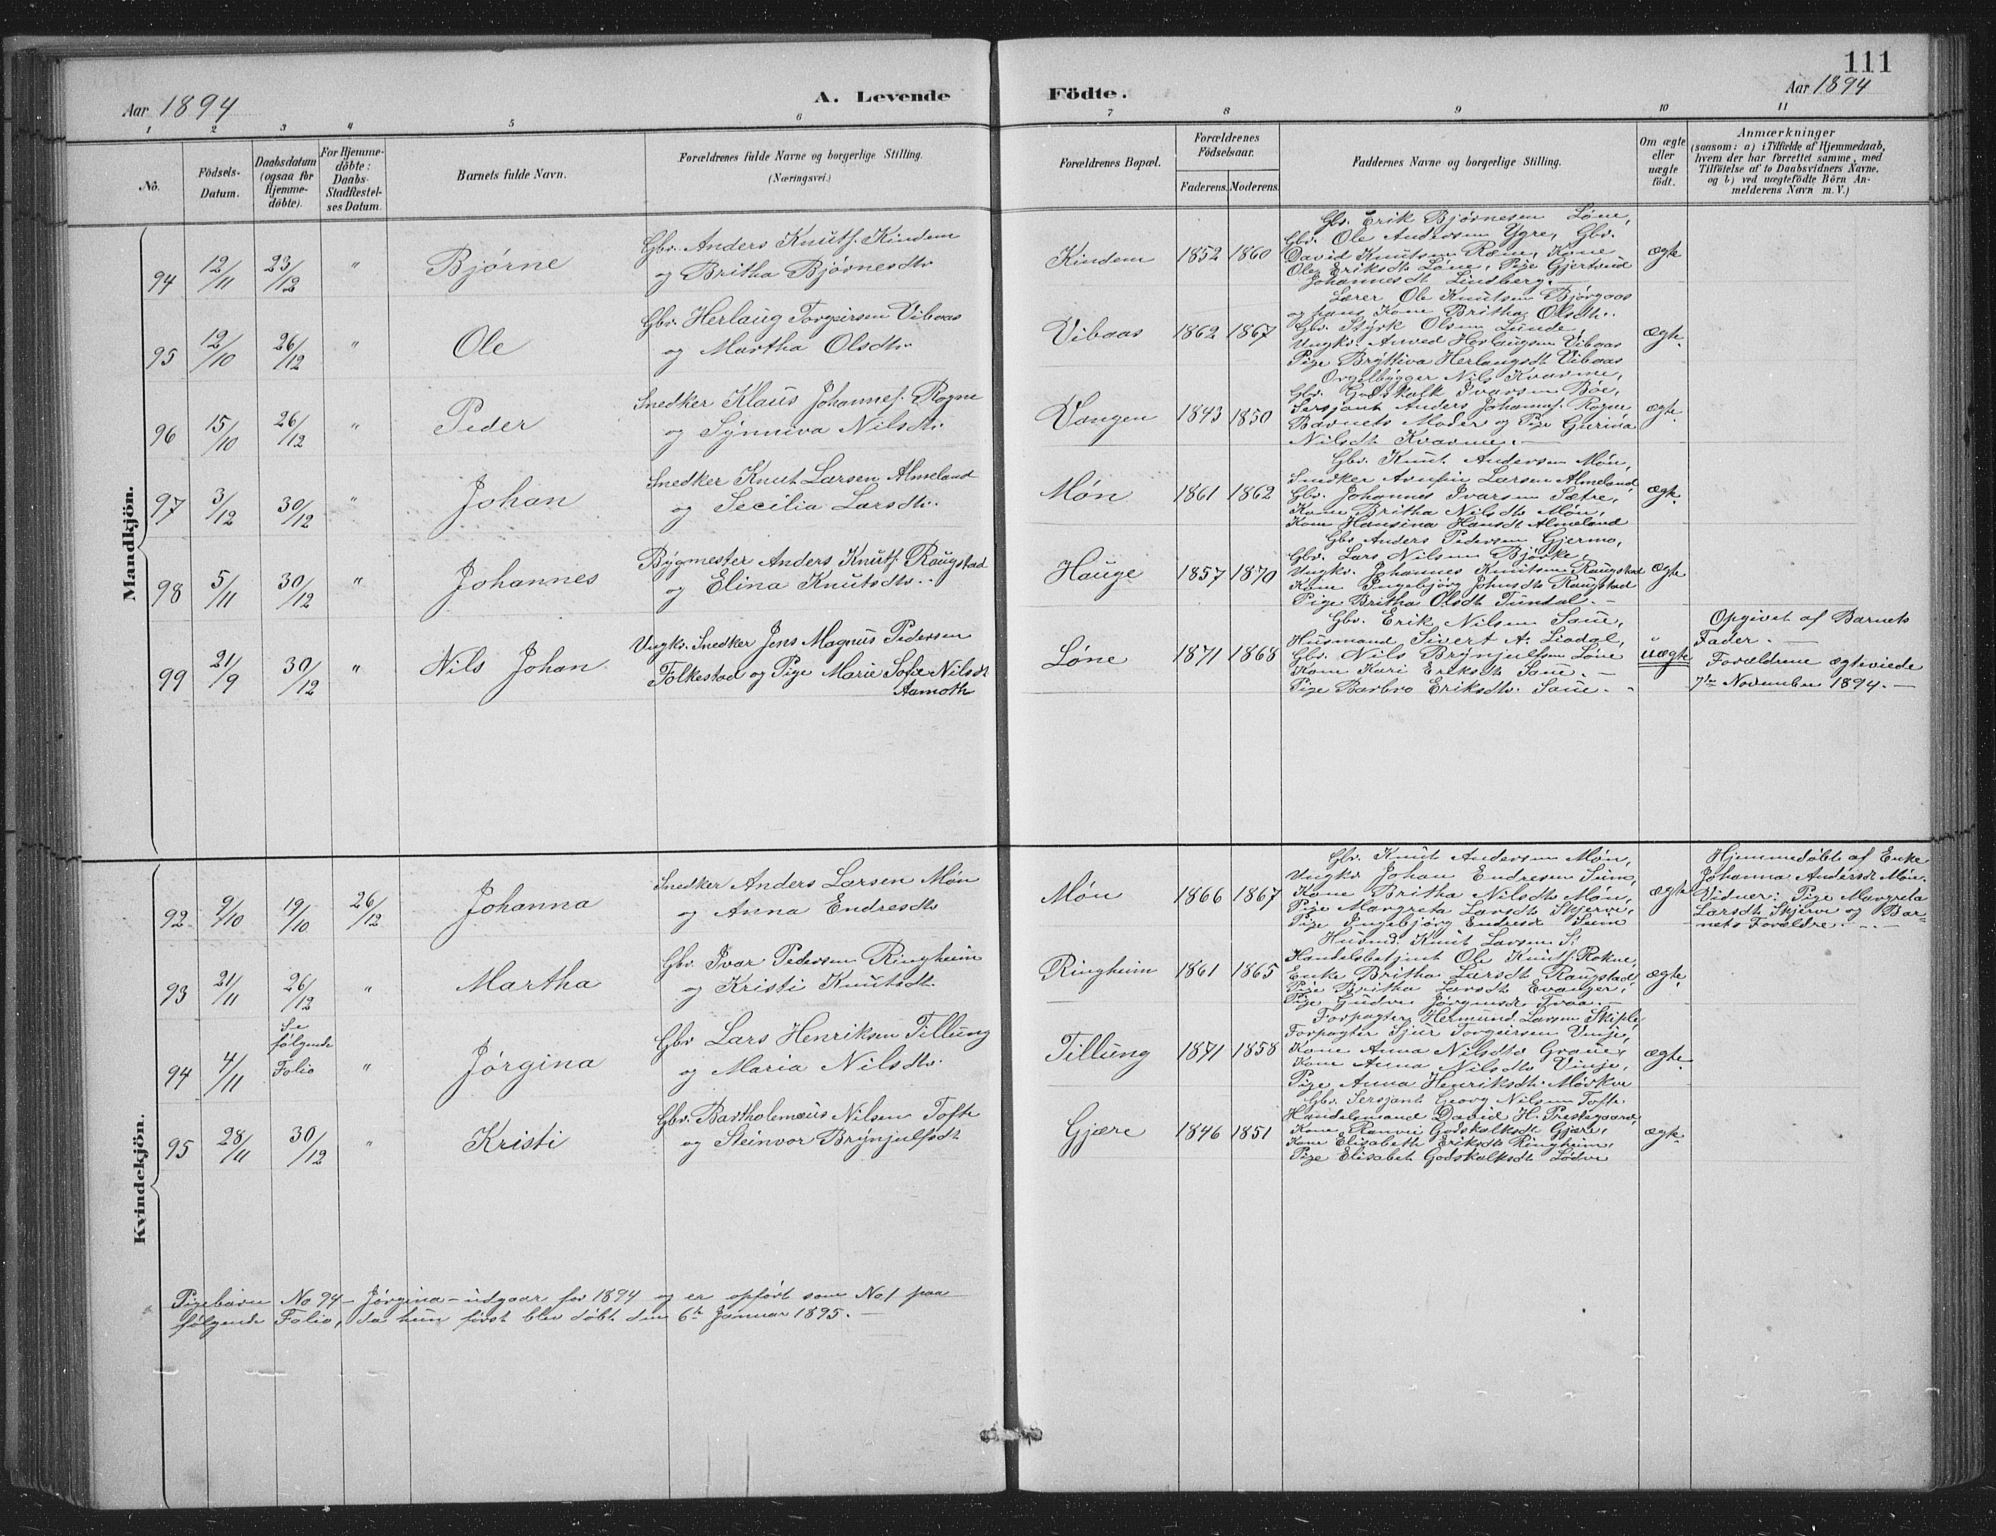 Aar 1894
A. Levende
Födte.
111
Aar 1894
1 2 3 4 5 6 7 8 9 10 11
No.
Födsels-
Datum.
Daabsdatum
(ogsaa for
Hjemme-
döbte).
For Hjemme-
döbte:
Daabs-
Stadfæstel-
ses Datum.
Barnets fulde Navn.
Forældrenes fulde Navne og borgerlige Stilling.
(Næringsvei.)
Forældrenes Bopæl.
Forældrenes
Födselsaar.
Faderens.
Moderens.
Faddernes Navne og borgerlige Stilling.
Om ægte
eller
uægte
födt.
Anmærkninger
(saasom: a) i Tilfælde af Hjemmedaab,
hvem der har forrettet samme, med
Tilföielse af to Daabsvidners Navne,
og b) ved uægtefödte Börn An-
melderens Navn m. V.)
Mandkjön.
94 12/11 23/12 " Bjørne
Gbr. Anders Knuts. Kindem
og Britha Bjørnesdtr.
Kindem 1852 1860
Gbr. Erik Bjørnesen Løne,
Gbr. Ole Andersen Ygre, Gbr.
David Knutsen Rene, Kone
Ole Eriksdt Løne, Pige Gjertrud
Johannesdt Lindberg.—
ægte
95 12/10 26/12 " Ole
Gbr. Herlaug Torgeirsen Vibaas
og Martha Olsdtr.
Vibaas 1862 1867
Lærer Ole Knutsen Bjørgaas
og hans Kone Britha Olsdtr.
Gbr. Styrk Olsen Lunde,
Ungk. Anved Herlaugsen Vibaas
Pige Bryttiva Herlaugsdt Vibaas
ægte.
96 15/10 26/12 " Peder
Snedker Klaus Johannes. Rogne
og Synneva Nilsdtr.
Vangen 1843 1850
Orgelbygger Nils Kvarme,
Gbr. Godskalk Ivarsen Bøe,
Sersjant Anders Johannes. Rogne,
Barnets Moder og Pige Guriva
Nilsdt Kvarme.—
ægte
97 3/12 30/12 " Johan
Snedker Knut Larsen Almeland
og Secilia Larsdtr.
Møn 1861 1862
Gbr. Knut Andersen Møn,
Snedker Arnfin Larsen Almeland,
Gbr. Johannes Ivarsen Sætre,
Kone Britha Nilsdtr Møn,
Kone Hansina Hansdt Almeland
ægte.
98 5/11 30/12 " Johannes
Bygmester Anders Knuts. Raugstad
og Elina Knutsdtr.
Hauge 1857 1870
Gbr Anders Pedersen Gjermo,
Gbr. Lars Nilsen Bjørke,
Ungk. Johannes Knutsen Raugstad
Kone Ingebjørg Johnsdt Raugstad
Pige Britha Olsdt Tundal.—
ægte
99 21/9 30/12 " Nils Johan
Ungk. Snedker Jens Magnus Pedersen
Folkestad og Pige Marie Sofie Nilsdt
Aamoth
Løne 1871 1868
Gbr. Erik Nilsen Saue,
Husmand Sivert A. Liadal,
Gbr. Nils Brynjulfsen Løne
Kone Kari Eriksdt Saue.—
Pige Barbro Eriksdtr. Saue.—
uægte
Opgivet af Barnets
Fader.—
Forældrene ægteviede
7de November 1894.—
Kvindekjön.
92 9/10 19/10 26/12 Johanna
Snedker Anders Larsen Møn
og Anna Endresdtr
Møn 1866 1867
Gbr. Knut Andersen Møn,
Ungk. Johan Endresen Seim,
Kone Britha Nilsdtr Møn,
Pige Margreta Larsdt Skjerve,
Pige Ingebjørg Endresd Seim
ægte
Hjemmedøbt af Enke
Johanna Andersdt Møn.
Vidner: Pige Margreta
Larsdt Skjerve og Bar-
nets Forældre.—
93 21/11 26/12 " Martha
Gbr Ivar Pedersen Ringheim
og Kristi Knutsdt.
Ringheim 1861 1865
Husmd. Knut Larsen
Handelsbetjent Ole Knuts. Rokne,
Enke Britha Larsdt Raugstad,
Pige Britha Larsdt Evanger,
Pige Gudve Jørgensdt Tvaa.—
ægte.
94 4/11 Se
følgende
Folio " Jørgina
Gbr Lars Henriksen Tillung
og Maria Nilsdtr.
Tillung 1871 1858
Forpagter Hermund Larsen Skiple,
Forpagter Sjur Torgeirsen Vinje,
Kone Anna Nilsdtr Graue,
Kone Anna Nilsdtr Vinje,
Pige Anna Henriksdtr. Mørkve
ægte.
95 28/11 30/12 " Kristi
Gbr. Bartholemæus Nilsen Tofte
og Steinvor Brynjulfsdt
Gjære 1846 1851
Gbr. Sersjant Georg Nilsen Tofte.
Handelsmand David H. Prestegaard,
Kone Ranvei Godskalksdt Gjære,
Kone Elisabeth Eriksdtr Ringheim,
Pige Elisabet Godskalksdt Lødve
ægte.
Pigebarn No 94 — Jørgina — udgaar for 1894 og er opført som No 1 paa
følgende Folio, da hun først blev døbt den 6te Januar 1895.—